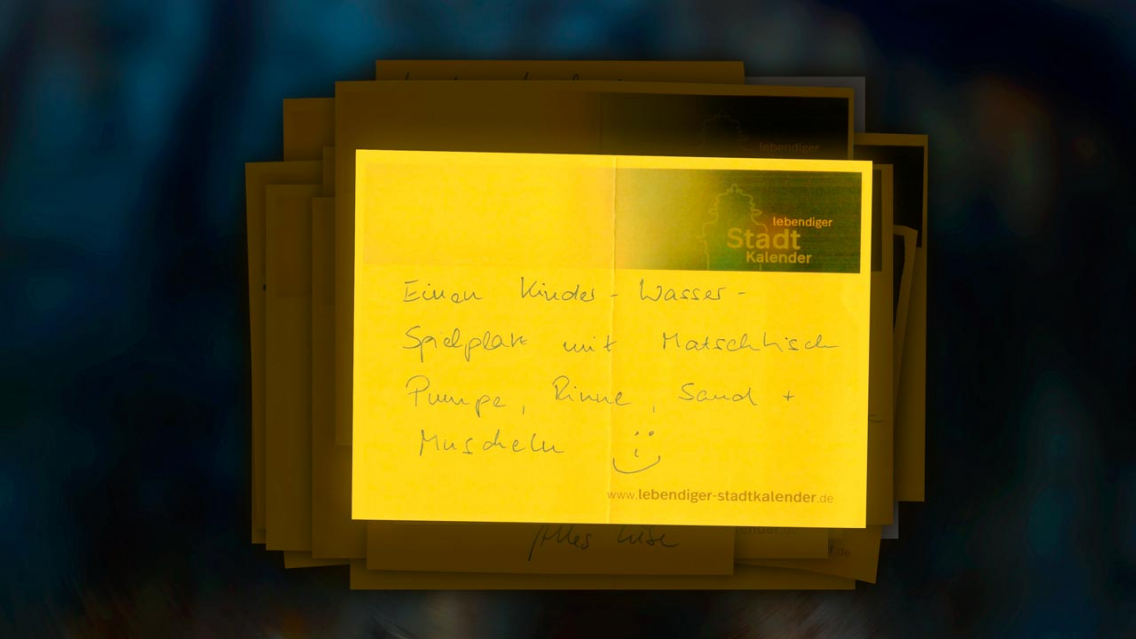 lebendiger
lebendiger
Stadt
Kalender
Einen Kinder-Wasser-
Spielplatz mit Matschtisch
Pumpe, Rinne, Sand +
Muscheln
www.lebendiger-stadtkalender.de
Alles
.de